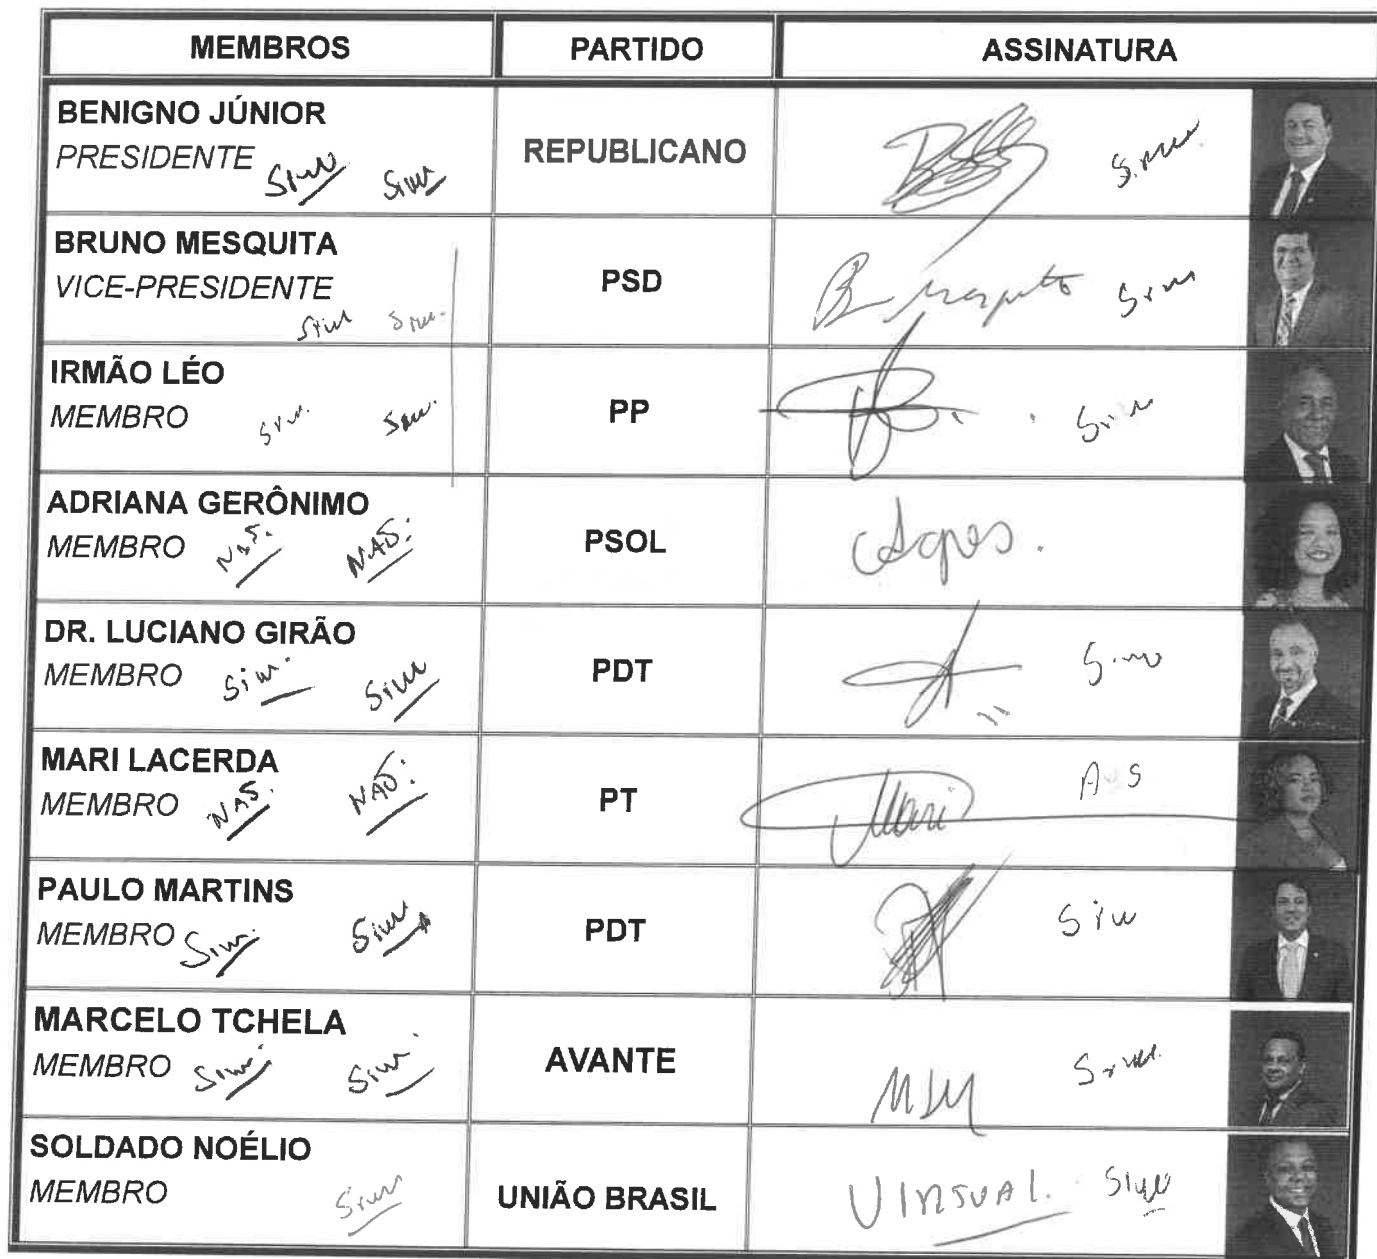 MEMBROS PARTIDO ASSINATURA
BENIGNO JÚNIOR
PRESIDENTE Sim Sim REPUBLICANO Sim
BRUNO MESQUITA
VICE-PRESIDENTE PSD B Mesquita Sim
Sim Sim.
IRMÃO LÉO
MEMBRO Sim. Sim. PP Sim
ADRIANA GERÔNIMO
MEMBRO NÃO. NÃO. PSOL
DR. LUCIANO GIRÃO
MEMBRO Sim. Sim PDT Sim
MARI LACERDA
MEMBRO NÃO. NÃO. PT Mari
PAULO MARTINS
MEMBRO Sim. Sim PDT Sim
MARCELO TCHELA
MEMBRO Sim. Sim. AVANTE Sim.
SOLDADO NOÉLIO
MEMBRO Sim UNIÃO BRASIL Sim